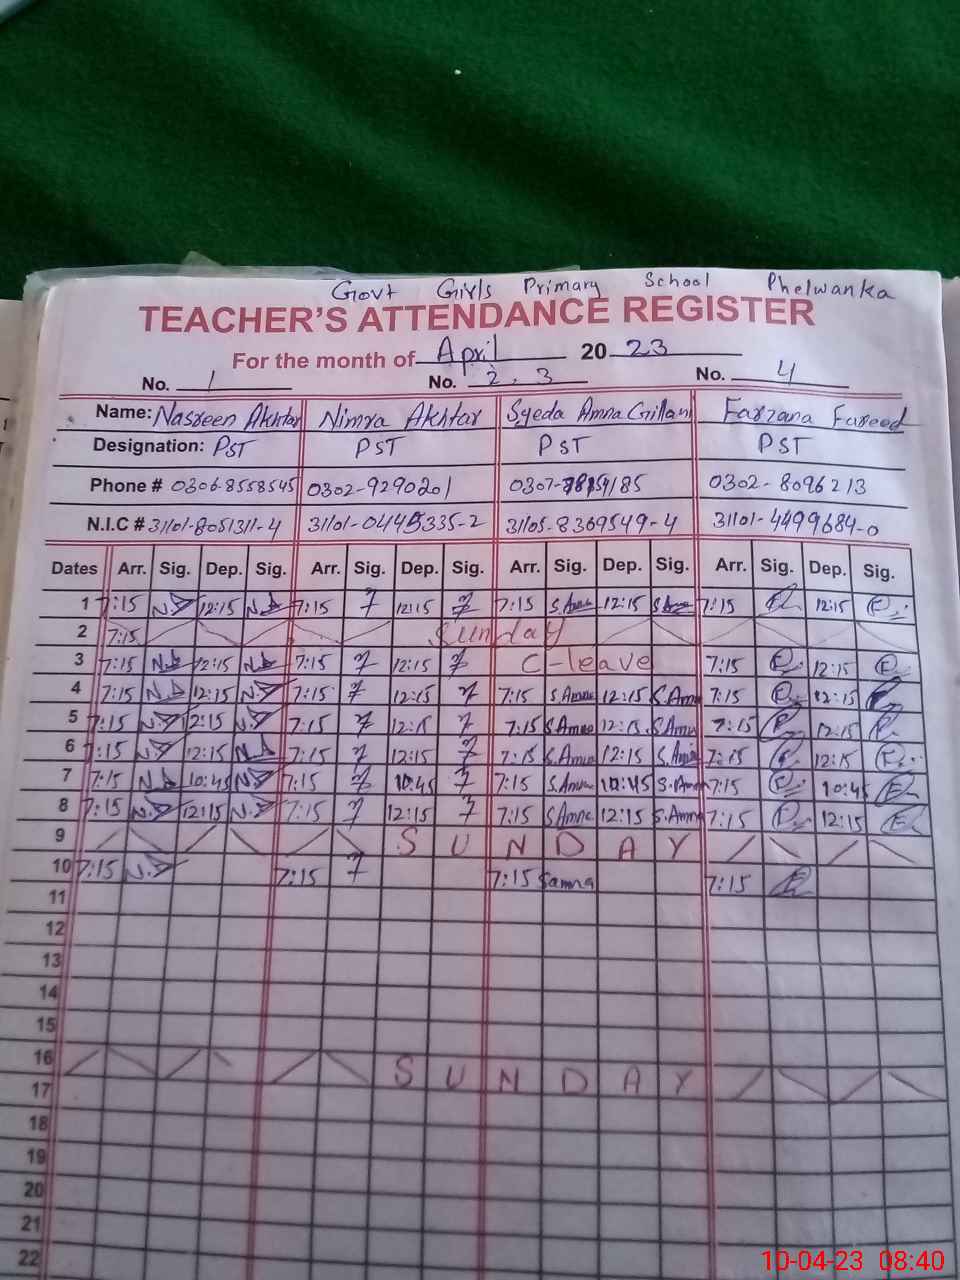 Govt Girls Primary School Phelwanka
TEACHER'S ATTENDANCE REGISTER
For the month of April 20 23
No. 1 No. 2, 3 No. 4
Name: Nasreen Akhtar Nimra Akhtar Syeda Amna Gillani Farzana Fareed
Designation: PST PST PST PST
Phone # 0306-8558545 0302-9290201 0307- 0302-8096213
N.I.C # 31101-8051311-4 31101-0445335-2 31105-8369549-4 31101-4499684-0
Dates Arr. Sig. Dep. Sig. Arr. Sig. Dep. Sig. Arr. Sig. Dep. Sig. Arr. Sig. Dep. Sig.
1 7:15 12:15 7:15 12:15 7:15 S.Amna 12:15 7:15 12:15
2 7:15 Sunday
3 7:15 12:15 7:15 12:15 C-leave 7:15 12:15
4 7:15 12:15 7:15 12:15 7:15 S.Amna 12:15 S.Amna 7:15 12:15
5 7:15 12:15 7:15 12:15 7:15 S.Amna 12:15 S.Amna 7:15 12:15
6 7:15 12:15 7:15 12:15 7:15 S.Amna 12:15 S.Amna 7:15 12:15
7 7:15 10:45 7:15 10:45 7:15 S.Amna 10:45 S.Amna 7:15 10:45
8 7:15 12:15 7:15 12:15 7:15 S.Amna 12:15 S.Amna 7:15 12:15
9 SUNDAY
10 7:15 7:15 7:15 Samna 7:15
11
12
13
14
15
16 SUNDAY
17
18
19
20
21
22
10-04-23 08:40